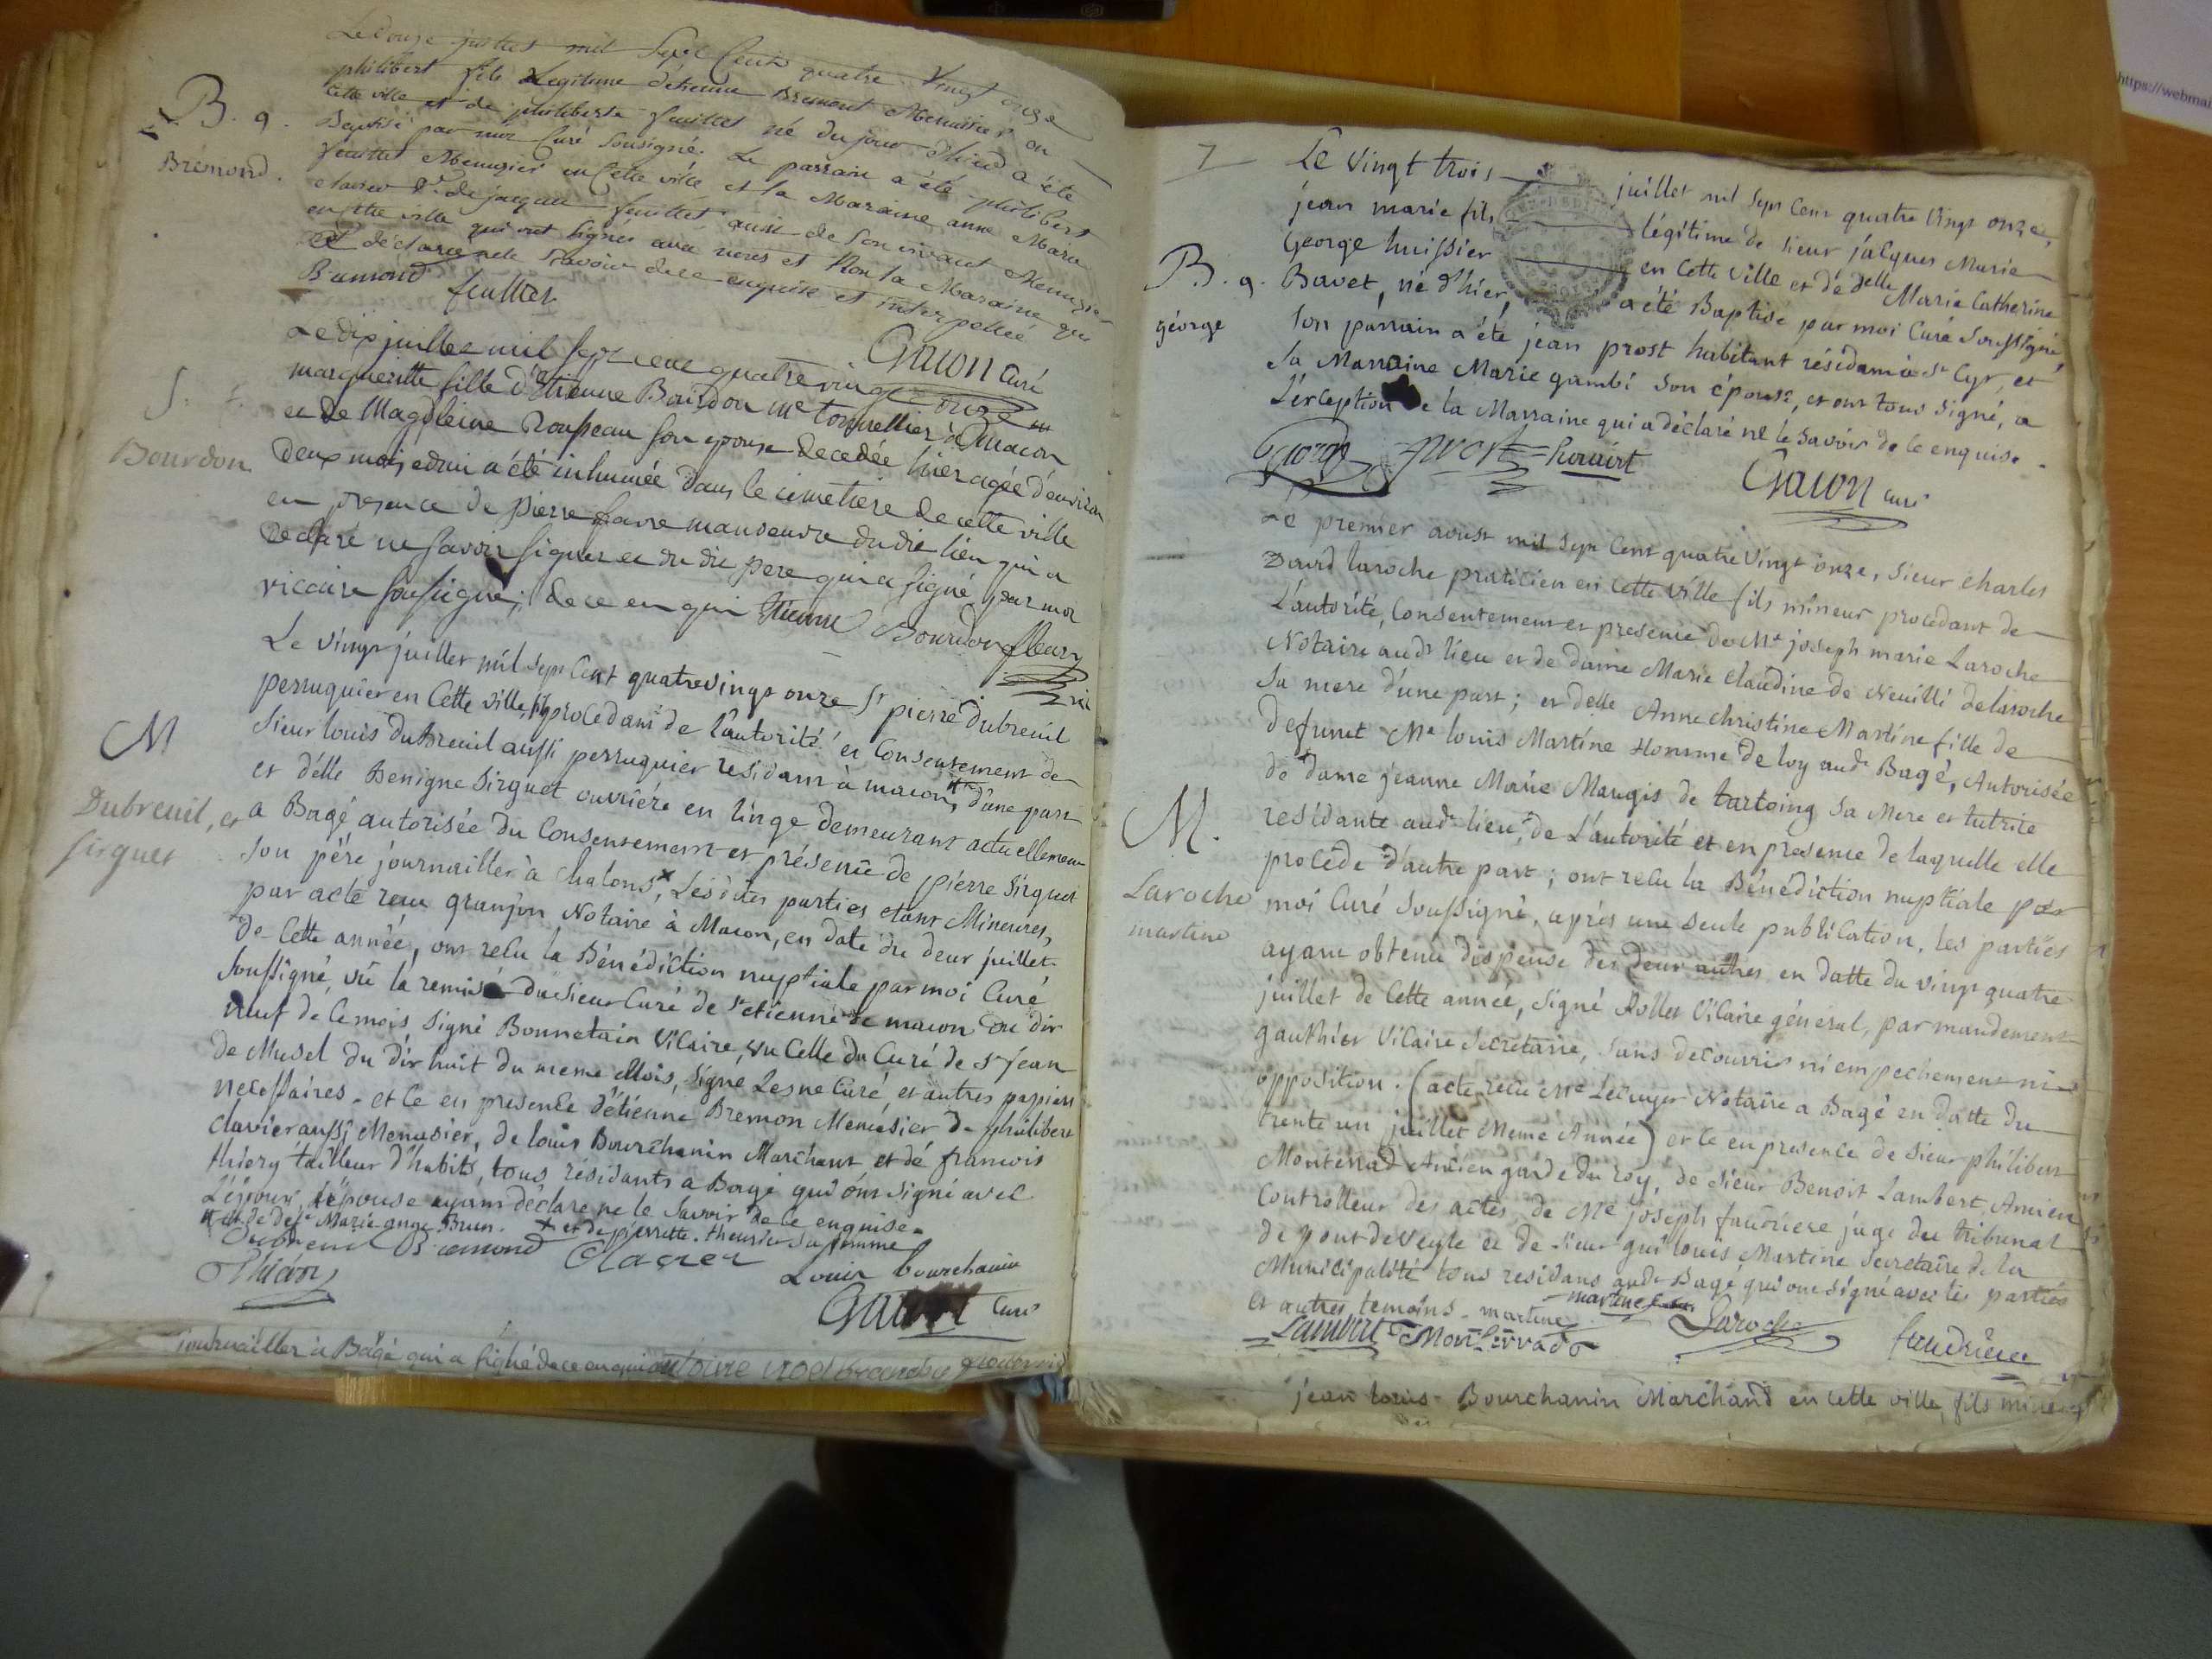 Le douze juillet mil Sept Cents quatre Vingt onze
philibert fils Legitime d'étienne Bremont Menuisier en
Cette ville et de philiberte feuillet né du jour d'hier a été
Baptisé par moi Curé Sousigné. Le parrain a été philibert
feuillet Menuisier en Cette ville et la Maraine anne Marie
de jaques feuillet aussi de Son vivant Menuisier
en cette ville qui ont Signés avec nous et Non la Maraine qui
a déclarée ne le Scavoir de ce enquise et interpellée
B. 9.
Brémond.
Bramond feuillet
Gacon Curé
Le dix juillet mil sept cent quatre vingt onze
marguerite fille d'Etienne Bourdon me tonnellier à Macon
et de Magdeleine Rousseau son epouse decedée hier agée d'environ
deux mois et demi a été inhumée dans le cimetiere de cette ville
en presence de pierre favre manoeuvre du dit lieu qui a
declaré ne savoir signer et du dit pere qui a signé par moi
vicaire soussigné, de ce enquis Etienne Bourdon fleury
vic
S.
Bourdon
Le vingt juillet mil sept Cent quatrevingt onze Sr pierre Dubreuil
perruquier en Cette ville, procedant de l'autorité et Consentement de
Sieur louis dubreuil aussi perruquier residant à macon, d'une part
et délle Benigne Sirguet ouvriére en linge demeurant actuellement
a Bagé autorisée du Consentement et présence de pierre Sirguet
son pére journaillier à Chalons, Lesdites parties étant Mineures,
par acte reçu granjon Notaire à Macon, en date du deux juillet
de Cette année, ont reçu la Bénédiction nuptiale par moi Curé
soussigné, vû la remise du sieur Curé de St etienne de macon du dix
neuf de ce mois Signé Bonnetain Vicaire, vu Celle du Curé de St jean
de Musel du dix huit du meme Mois, Signé Lesne Curé, et autres papiers
necessaires - et ce en presence d'étienne Bremon Menuisier de philibert
clavier aussi Menusier, de louis Bourchanin Marchant et dé francois
thiery tailleur d'habits, tous résidants a Bagé qui ont signé avec
L'époux, l'épouse ayant déclaré ne le Savoir de ce enquise.
et de defte Marie ange Brun. + et de pierrette theurier sa femme
M
Dubreuil, et
Sirguet
Dubreuil Bramond Clavier
Louis bourchanin
Thiéry
Gacon Curé
journaillier à Bagé qui a signé de ce enquis
7
Le Vingt trois juillet mil Sept Cent quatre Vingt onze,
jean marie fils légitime de sieur jacques Marie
George huissier en Cette Ville et dé delle Marie Catherine
Bavet, né d'hier, a été Baptisé par moi Curé Soussigné,
son parrain a été jean prost habitant résidant à St Cyr, et
sa Marraine Marie gambi son épouse, et ont tous signé, a
L'éxception de la Marraine qui a déclaré ne le savoir de ce enquise.
B. 9.
géorge
George prost
Gacon Curé
Le premier aoust mil Sept Cent quatre Vingt onze, Sieur Charles
David laroche praticien en Cette Ville fils mineur procédant de
L'autorité, Consentement et presence de Me joseph marie Laroche
Notaire aud. lieu et de dame Marie claudine de Neuilli delaroche
sa mere d'une part; et delle Anne christine Martine fille de
defunct Me louis Martine Homme de loy aud. Bagé, Autorisée
de dame jeanne Marie Maugis de tartoing sa Mere et tutrice
residante aud. lieu; de L'autorité et en presence de laquelle elle
procéde d'autre part; ont reçu la Bénédiction nuptiale par
moi Curé Soussigné, aprés une seule publication, les parties
ayant obtenu dispense des deux autres en datte du vingt quatre
juillet de Cette année, Signé Rollet Vicaire général, par mandement
gauthier Vicaire Secretaire, sans decouvrir ni empechement ni
opposition. (acte reçu Me Lecuyer Notaire a Bagé en datte du
trente un juillet Meme Année) et ce en presence de sieur philibert
Monterrad Ancien garde du roy, de sieur Benoit Lambert, Ancien
Controlleur des actes, de Me joseph faudriere juge du tribunal
de pont de veyle et de sieur gui louis Martine Secretaire de la
Municipalité tous residans aud. Bagé qui ont signé avec les parties
et autres temoins. martine
M.
Laroche
martine
Lambert Monterrad Laroche faudriere
jean louis Bourchanin Marchand en cette ville, fils mineur
https://webmai